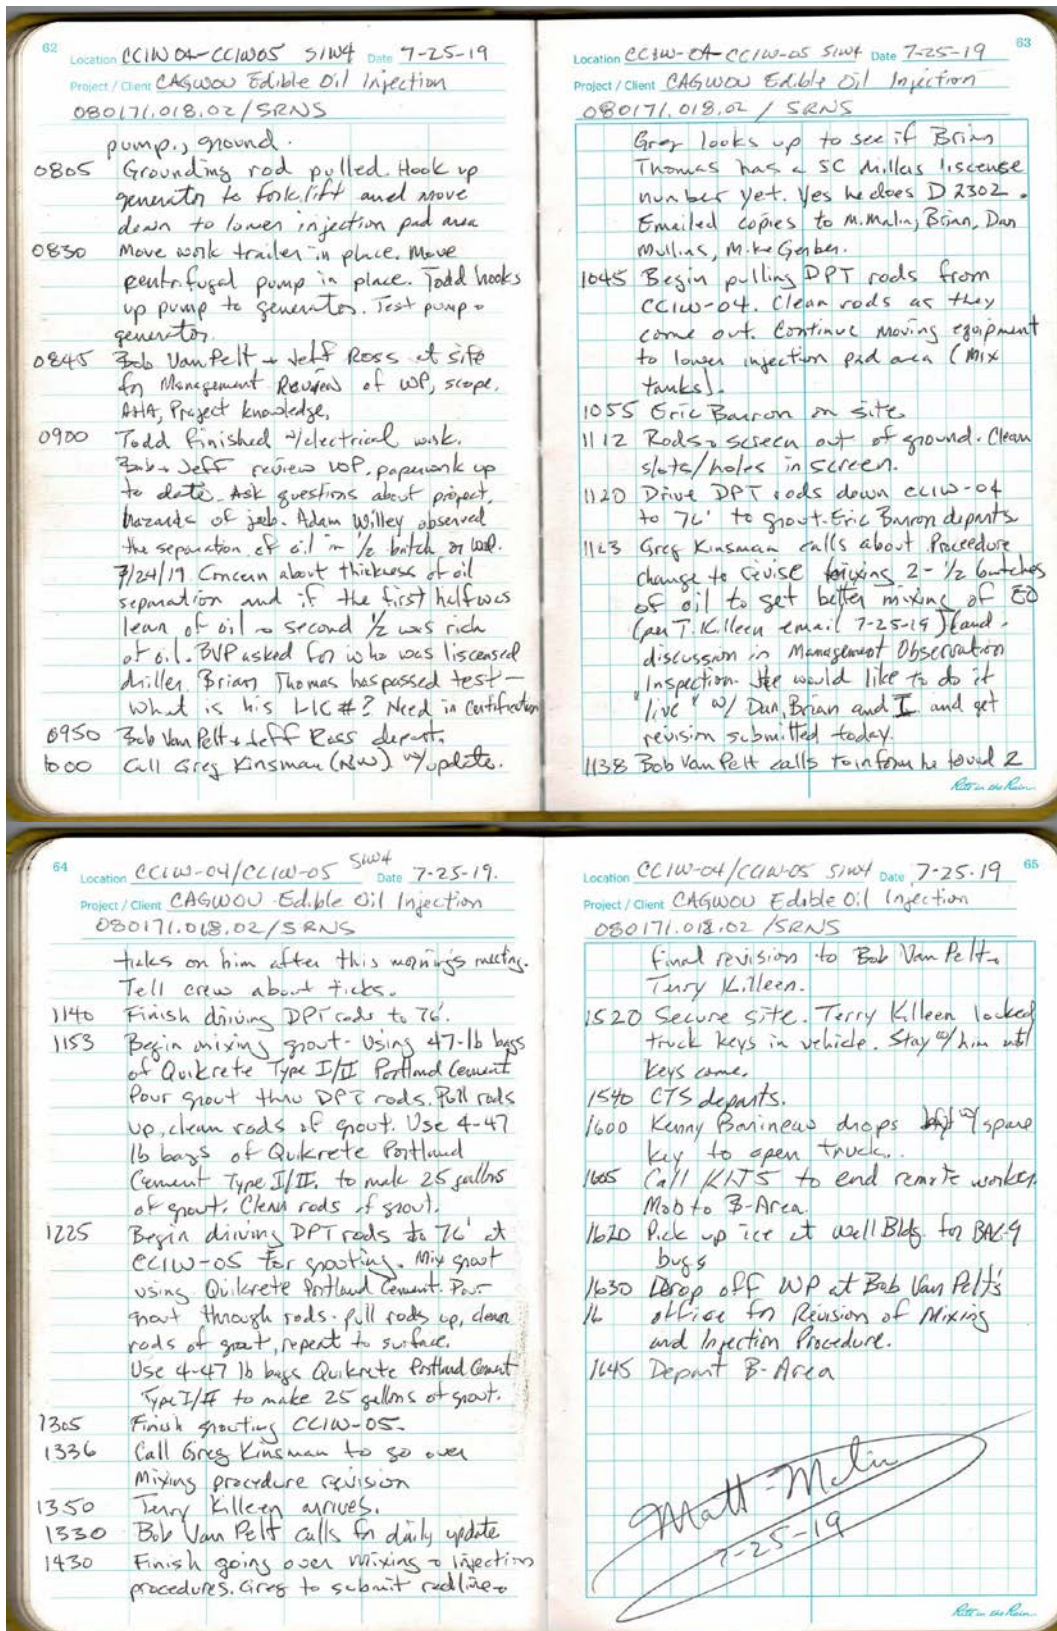 62
Location CCIW 04-CCIW05 SIW4 Date 7-25-19
Project / Client CAGWOU Edible Oil Injection
080171.018.02/SRNS
pump., ground.
0805 Grounding rod pulled. Hook up
generator to forklift and move
down to lower injection pad area
0830 Move work trailer in place. Move
centrifugal pump in place. Todd hooks
up pump to generator. Test pump +
generator.
0845 Bob Van Pelt + Jeff Ross at site
for Management Review of WP, scope,
AHA, Project knowledge,
0900 Todd finished w/electrical work.
Bob + Jeff review WP. paperwork up
to date. Ask questions about project,
hazards of job. Adam Willey observed
the separation of oil in 1/2 batch on wed.
7/24/19 Concern about thickness of oil
separation and if the first half was
lean of oil + second 1/2 was rich
of oil. BVP asked for who was liscensed
driller. Brian Thomas has passed test -
What is his LIC #? Need in Certification
0950 Bob Van Pelt + Jeff Ross depart.
1000 Call Greg Kinsman (NW) w/update.
63
Location CCIW-04-CCIW-05 SIW4 Date 7-25-19
Project / Client CAGWOU Edible Oil Injection
080171.018.02 / SRNS
Greg looks up to see if Brian
Thomas has a SC Drillers liscense
number yet. Yes he does D 2302.
Emailed copies to M.Malin, Brian, Dan
Mullins, Mike Gerber.
1045 Begin pulling DPT rods from
CCIW-04. Clean rods as they
come out. Continue moving equipment
to lower injection pad area (mix
tanks).
1055 Eric Barron on site
1112 Rods + screen out of ground. Clean
slots/holes in screen.
1120 Drive DPT rods down CCIW-04
to 76' to grout. Eric Barron departs.
1123 Greg Kinsman calls about Proceedure
change to revise mixing 2-1/2 batches
of oil to get better mixing of EO
(per T. Killeen email 7-25-19) (and
discussion in Management Observation
Inspection. He would like to do it
"live" w/ Dan, Brian and I and get
revision submitted today.
1138 Bob Van Pelt calls to inform he found 2
Rite in the Rain
64
Location CCIW-04/CCIW-05 SIW4 Date 7-25-19.
Project / Client CAGWOU Edible Oil Injection
080171.018.02/SRNS
ticks on him after this morning's meeting.
Tell crew about ticks.
1140 Finish driving DPT rods to 76'.
1153 Begin mixing grout. Using 47-lb bags
of Quikrete Type I/II Portland Cement
Pour grout thru DPT rods. Pull rods
up, clean rods of grout. Use 4-47
lb bags of Quikrete Portland
Cement Type I/II. to make 25 gallons
of grout. Clean rods of grout.
1225 Begin driving DPT rods to 76' at
CCIW-05 for grouting. Mix grout
using Quikrete Portland Cement. Pour
grout through rods. pull rods up, clean
rods of grout, repeat to surface.
Use 4-47 lb bags Quikrete Portland Cement
Type I/II to make 25 gallons of grout.
1305 Finish grouting CCIW-05.
1336 Call Greg Kinsman to go over
Mixing procedure revision
1350 Terry Killeen arrives.
1330 Bob Van Pelt calls for daily update
1430 Finish going over mixing + injection
procedures. Greg to submit redline +
65
Location CCIW-04/CCIW-05 SIW4 Date 7-25-19
Project / Client CAGWOU Edible Oil Injection
080171.018.02 /SRNS
final revision to Bob Van Pelt +
Terry Killeen.
1520 Secure site. Terry Killeen locked
truck keys in vehicle. Stay w/him until
keys come.
1540 CTS departs.
1600 Kenny Barineau drops w/ spare
key to open truck.
1605 Call to end remote worker.
Mob to B-Area.
1620 Pick up ice at well Bldg. for BAC-9
bugs
1630 Drop off WP at Bob Van Pelt's
16 office for Revision of Mixing
and Injection Procedure.
1645 Depart B-Area
Matt Malin
7-25-19
Rite in the Rain